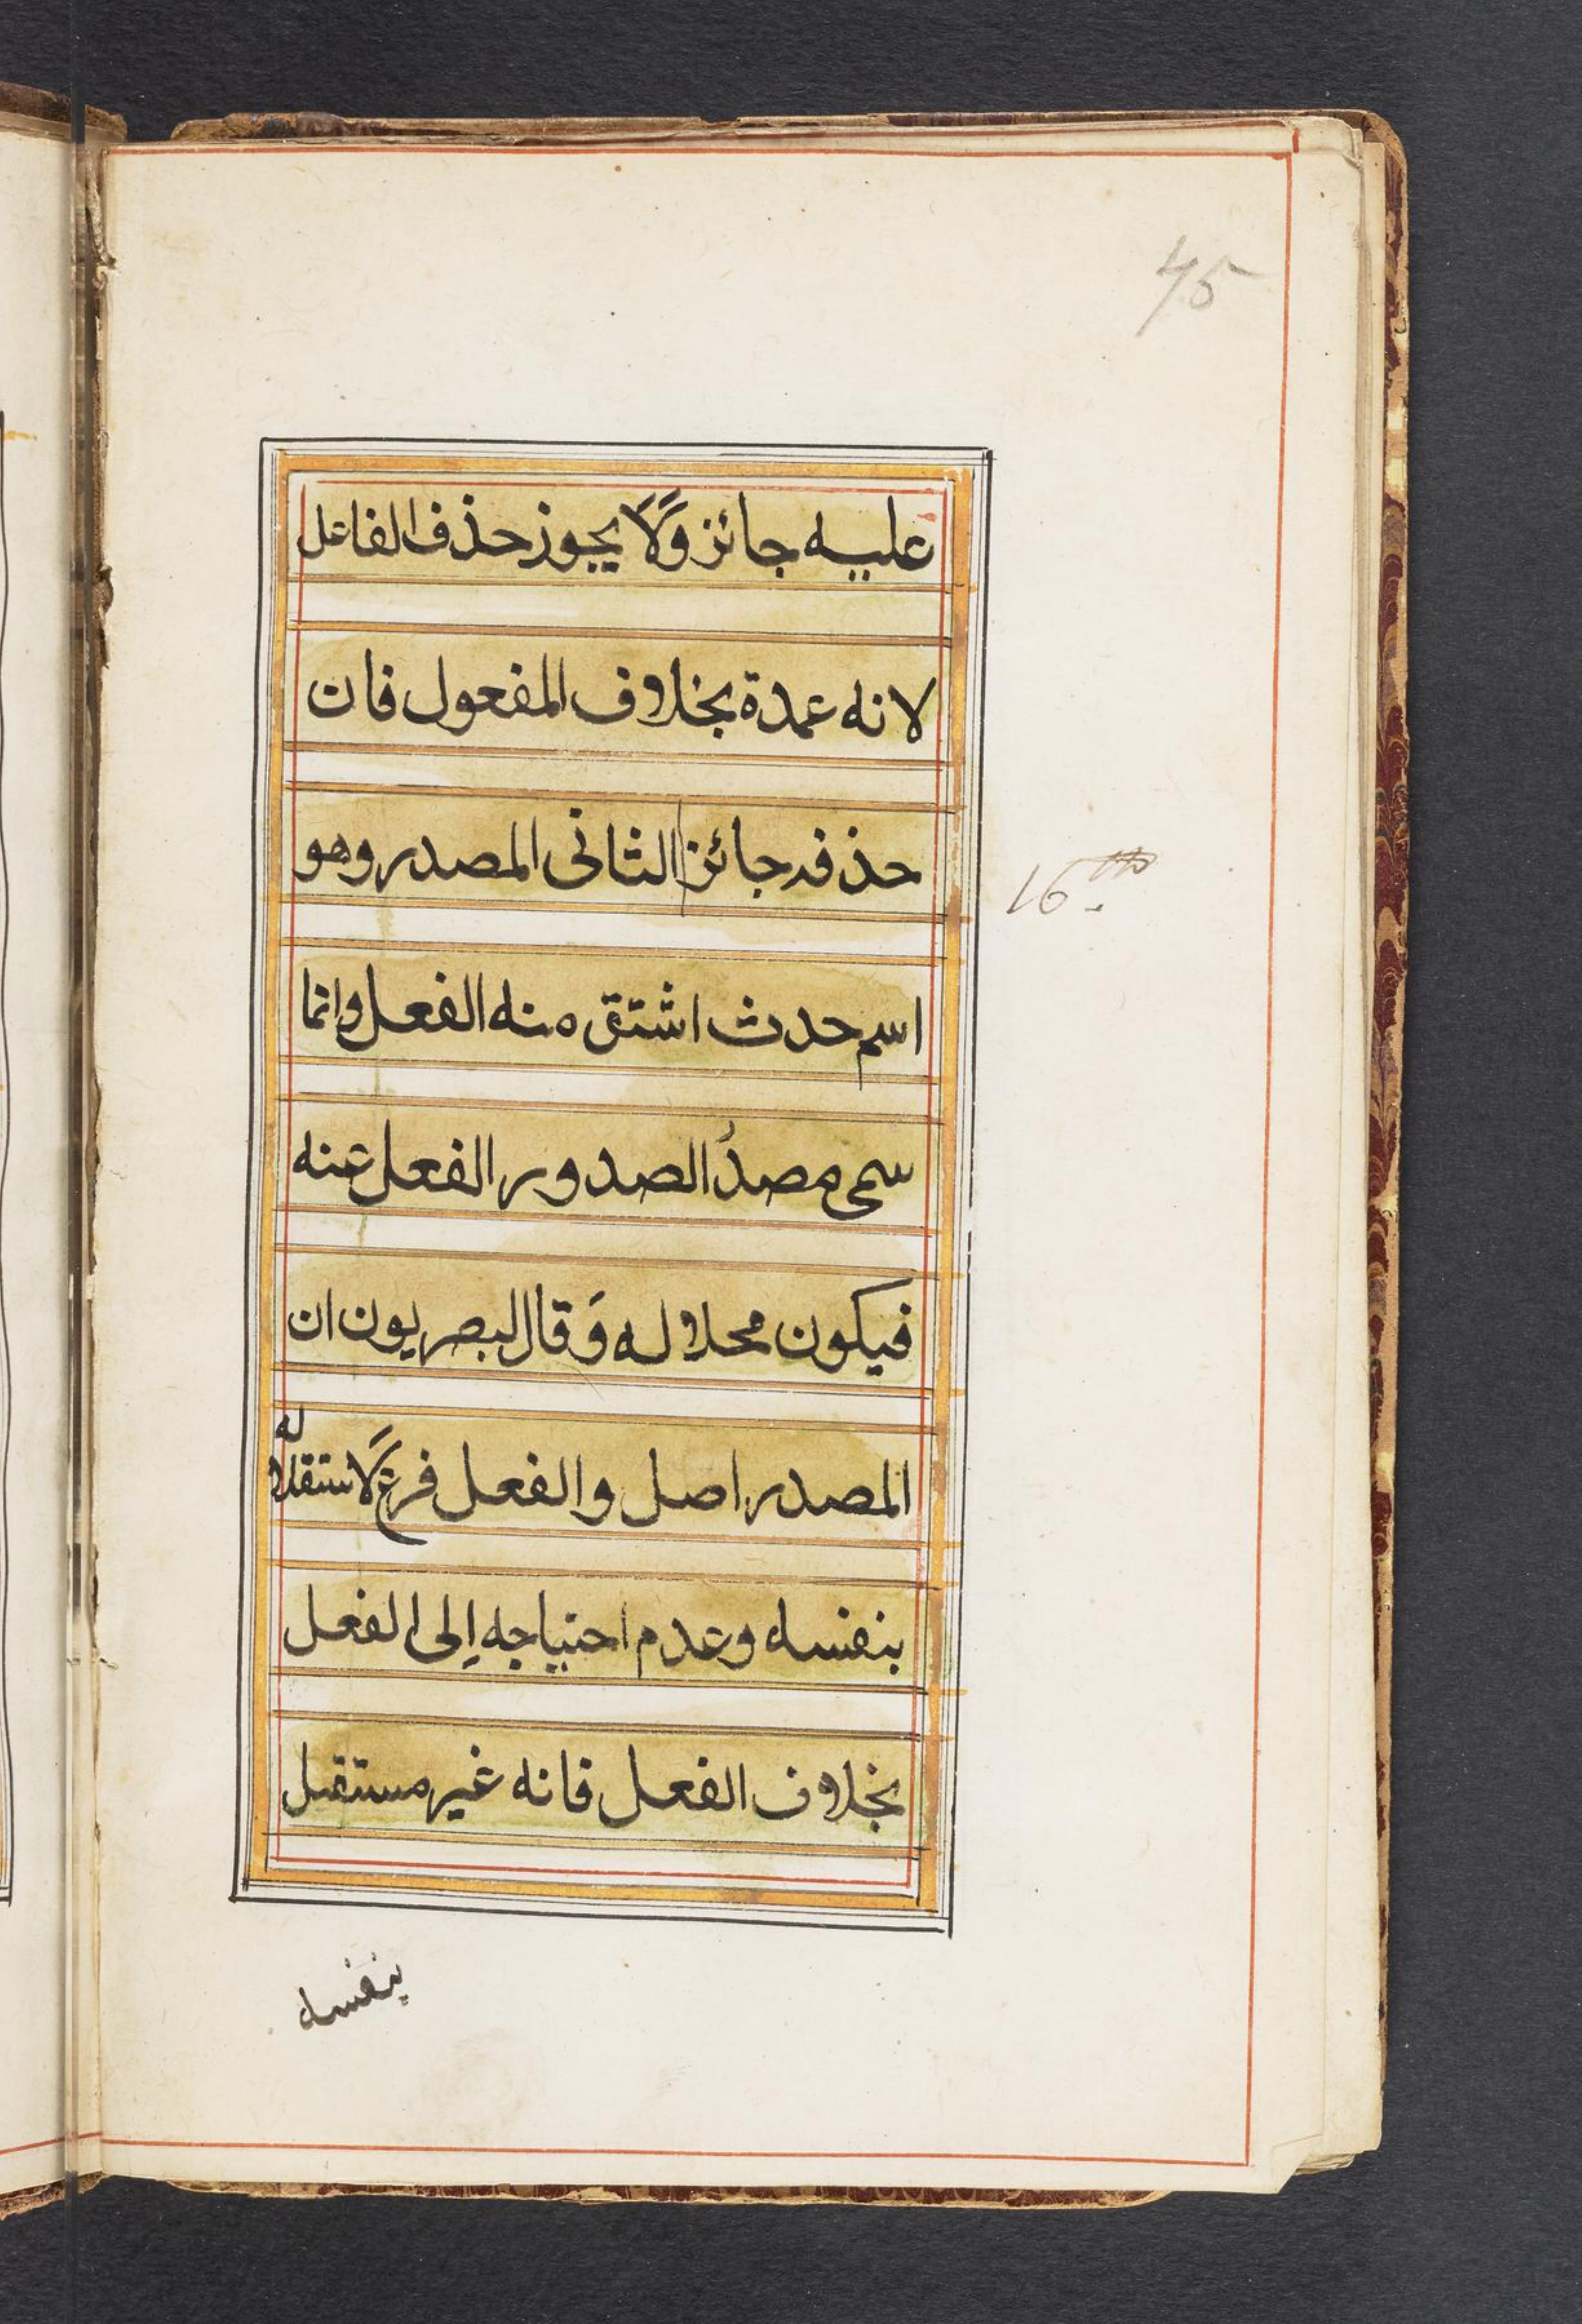 45
عليه جائز وَّلَا يجوز حذف الفاعل
لانه عمدة بخلاف المفعول فان
حذفه جائز الثانى المصدر وهو
16th
اسم حدث اشتق منه الفعل وانما
سمى مصدرُ الصدور الفعل عنه
فيكون محلا له وَقال البصريون ان
المصدر اصل والفعل فرع لًاستقلاله
بنفسه وعدم احتياجه اِلى الفعل
بخلاف الفعل فانه غير مستقل
بنفسه